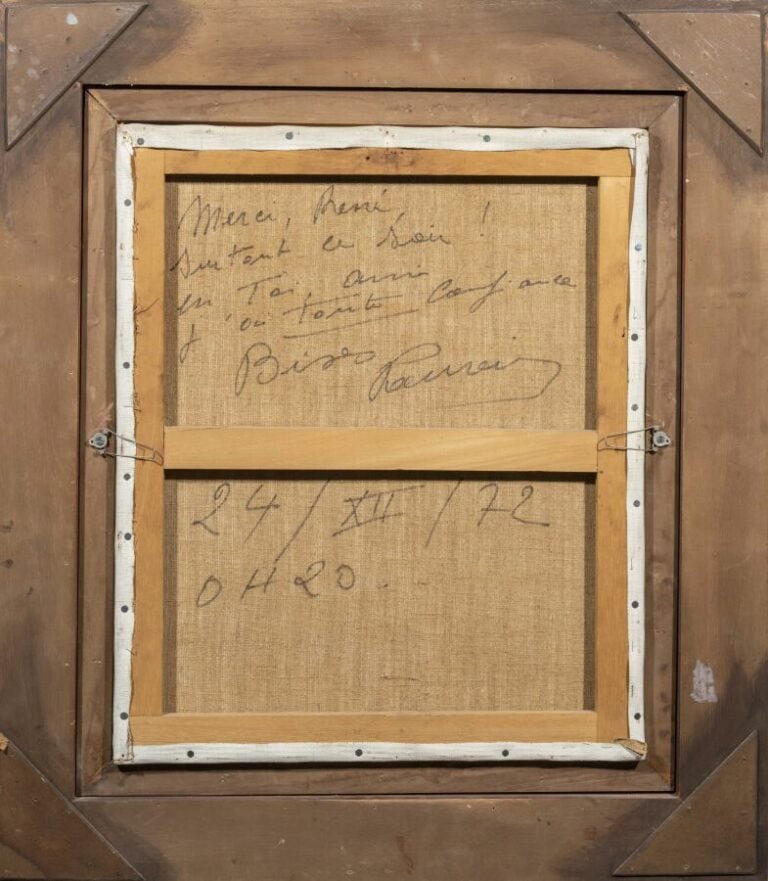 Merci, René,
surtout ce soir !
en Toi, ami
j'ai toute confiance
Bises
24/XII/72
0H20.